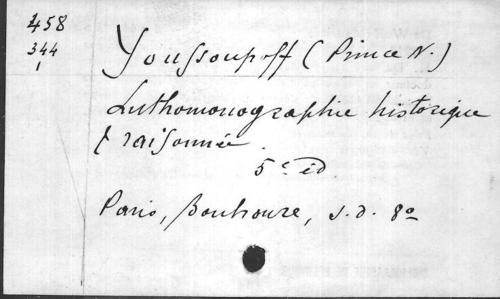 458
344
1
Youssoupoff (Prince N.)
Luthomonographie historique
& raisonnée.
5e éd
Paris, s.d. 8o